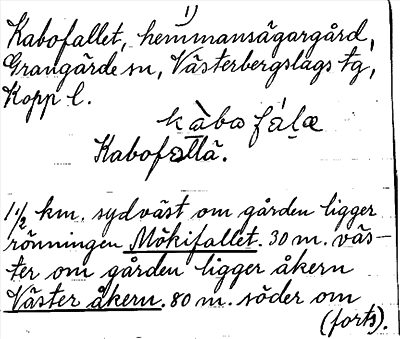 1)
Kabofallet, hemmansägargård,
Grangärde sn, Västerbergslags tg,
Kopp l.
kàbo fáḷæ
Kabofallä.
1 1/2 km. sydväst om gården ligger
rönningen Mökifallet. 30 m. väs-
ter om gården ligger åkern
Väster åkern. 80 m. söder om
(forts).